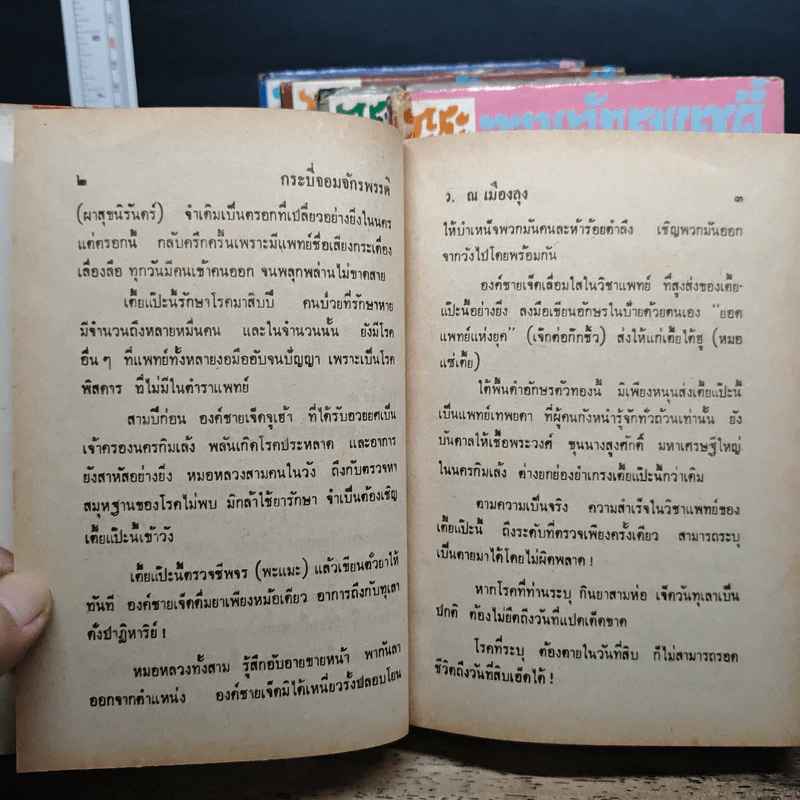 ๒ กระบี่จอมจักรพรรดิ
(ผาสุขนิรันดร์) จำเดิมเป็นตรอกที่เปลี่ยวอย่างยิ่งในนคร
แต่ตรอกนี้ กลับครึกครื้นเพราะมีแพทย์ชื่อเสียงกระเดื่อง
เลื่องลือ ทุกวันมีคนเข้าคนออก จนพลุกพล่านไม่ขาดสาย
เตี้ยแป๊ะนี้รักษาโรคมาสิบปี คนป่วยที่รักษาหาย
มีจำนวนถึงหลายหมื่นคน และในจำนวนนั้น ยังมีโรค
อื่นๆ ที่แพทย์ทั้งหลายงอมืออับจนปัญญา เพราะเป็นโรค
พิสดาร ที่ไม่มีในตำราแพทย์
สามปีก่อน องค์ชายเจ็ดจูเฮ้า ที่ได้รับอวยยศเป็น
เจ้าครองนครกิมเล้ง พลันเกิดโรคประหลาด และอาการ
ยังสาหัสอย่างยิ่ง หมอหลวงสามคนในวัง ถึงกับตรวจหา
สมุหฐานของโรคไม่พบ มิกล้าใช้ยารักษา จำเป็นต้องเชิญ
เตี้ยแป๊ะนี้เข้าวัง
เตี้ยแป๊ะนี้ตรวจชีพจร (พะแมะ) แล้วเขียนตั๋วยาให้
ทันที องค์ชายเจ็ดดื่มยาเพียงหม้อเดียว อาการถึงกับทุเลา
ดั่งปาฏิหาริย์!
หมอหลวงทั้งสาม รู้สึกอับอายขายหน้า พากันลา
ออกจากตำแหน่ง องค์ชายเจ็ดมิได้เหนี่ยวรั้งปลอบโยน
ว. ณ เมืองลุง ๓
ให้บำเหน็จพวกมันคนละห้าร้อยตำลึง เชิญพวกมันออก
จากวังไปโดยพร้อมกัน
องค์ชายเจ็ดเลื่อมใสในวิชาแพทย์ ที่สูงส่งของเตี้ย-
แป๊ะนี้อย่างยิ่ง ลงมือเขียนอักษรในป้ายด้วยตนเอง "ยอด
แพทย์แห่งยุค" (เจ๊กต่อก๊กชิ้ว) ส่งให้แก่เตี้ยไต้ฮู (หมอ
แซ่เตี้ย)
ใต้พื้นคำอักษรตัวทองนี้ มิเพียงหนุนส่งเตี้ยแป๊ะนี้
เป็นแพทย์เทพยดา ที่ผู้คนกังหนำรู้จักทั่วถ้วนเท่านั้น ยัง
บันดาลให้เชื้อพระวงศ์ ขุนนางสูงศักดิ์ มหาเศรษฐีใหญ่
ในนครกิมเล้ง ต่างยกย่องยำเกรงเตี้ยแป๊ะนี้กว่าเดิม
ตามความเป็นจริง ความสำเร็จในวิชาแพทย์ของ
เตี้ยแป๊ะนี้ ถึงระดับที่ตรวจเพียงครั้งเดียว สามารถระบุ
เป็นตายมาได้โดยไม่ผิดพลาด!
หากโรคที่ท่านระบุ กินยาสามห่อ เจ็ดวันทุเลาเป็น
ปกติ ต้องไม่ยืดถึงวันที่แปดเด็ดขาด
โรคที่ระบุ ต้องตายในวันที่สิบ ก็ไม่สามารถรอด
ชีวิตถึงวันที่สิบเอ็ดได้!